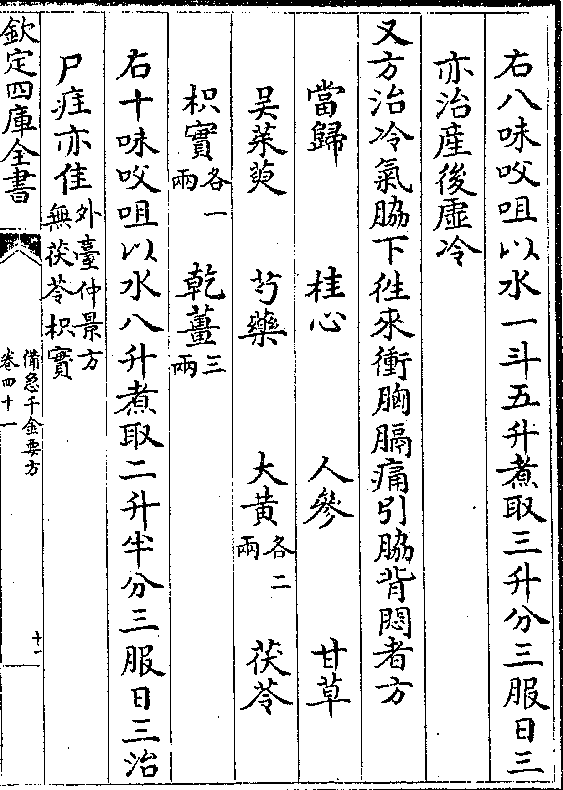 右八味㕮咀以水一斗五升煮取三升分三服日三
亦治産後虛冷
又方治冷氣脇下徃來衝胸膈痛引脇背悶者方
當歸 桂心 人參 甘草
吳茱萸 芍藥 大黄各二兩 茯苓
枳實各一兩 乾薑三兩
右十味㕮咀以水八升煮取二升半分三服日三治
尸疰亦佳外臺仲景方無茯苓枳實
欽定四庫全書
備急千金要方
卷四十一
十一